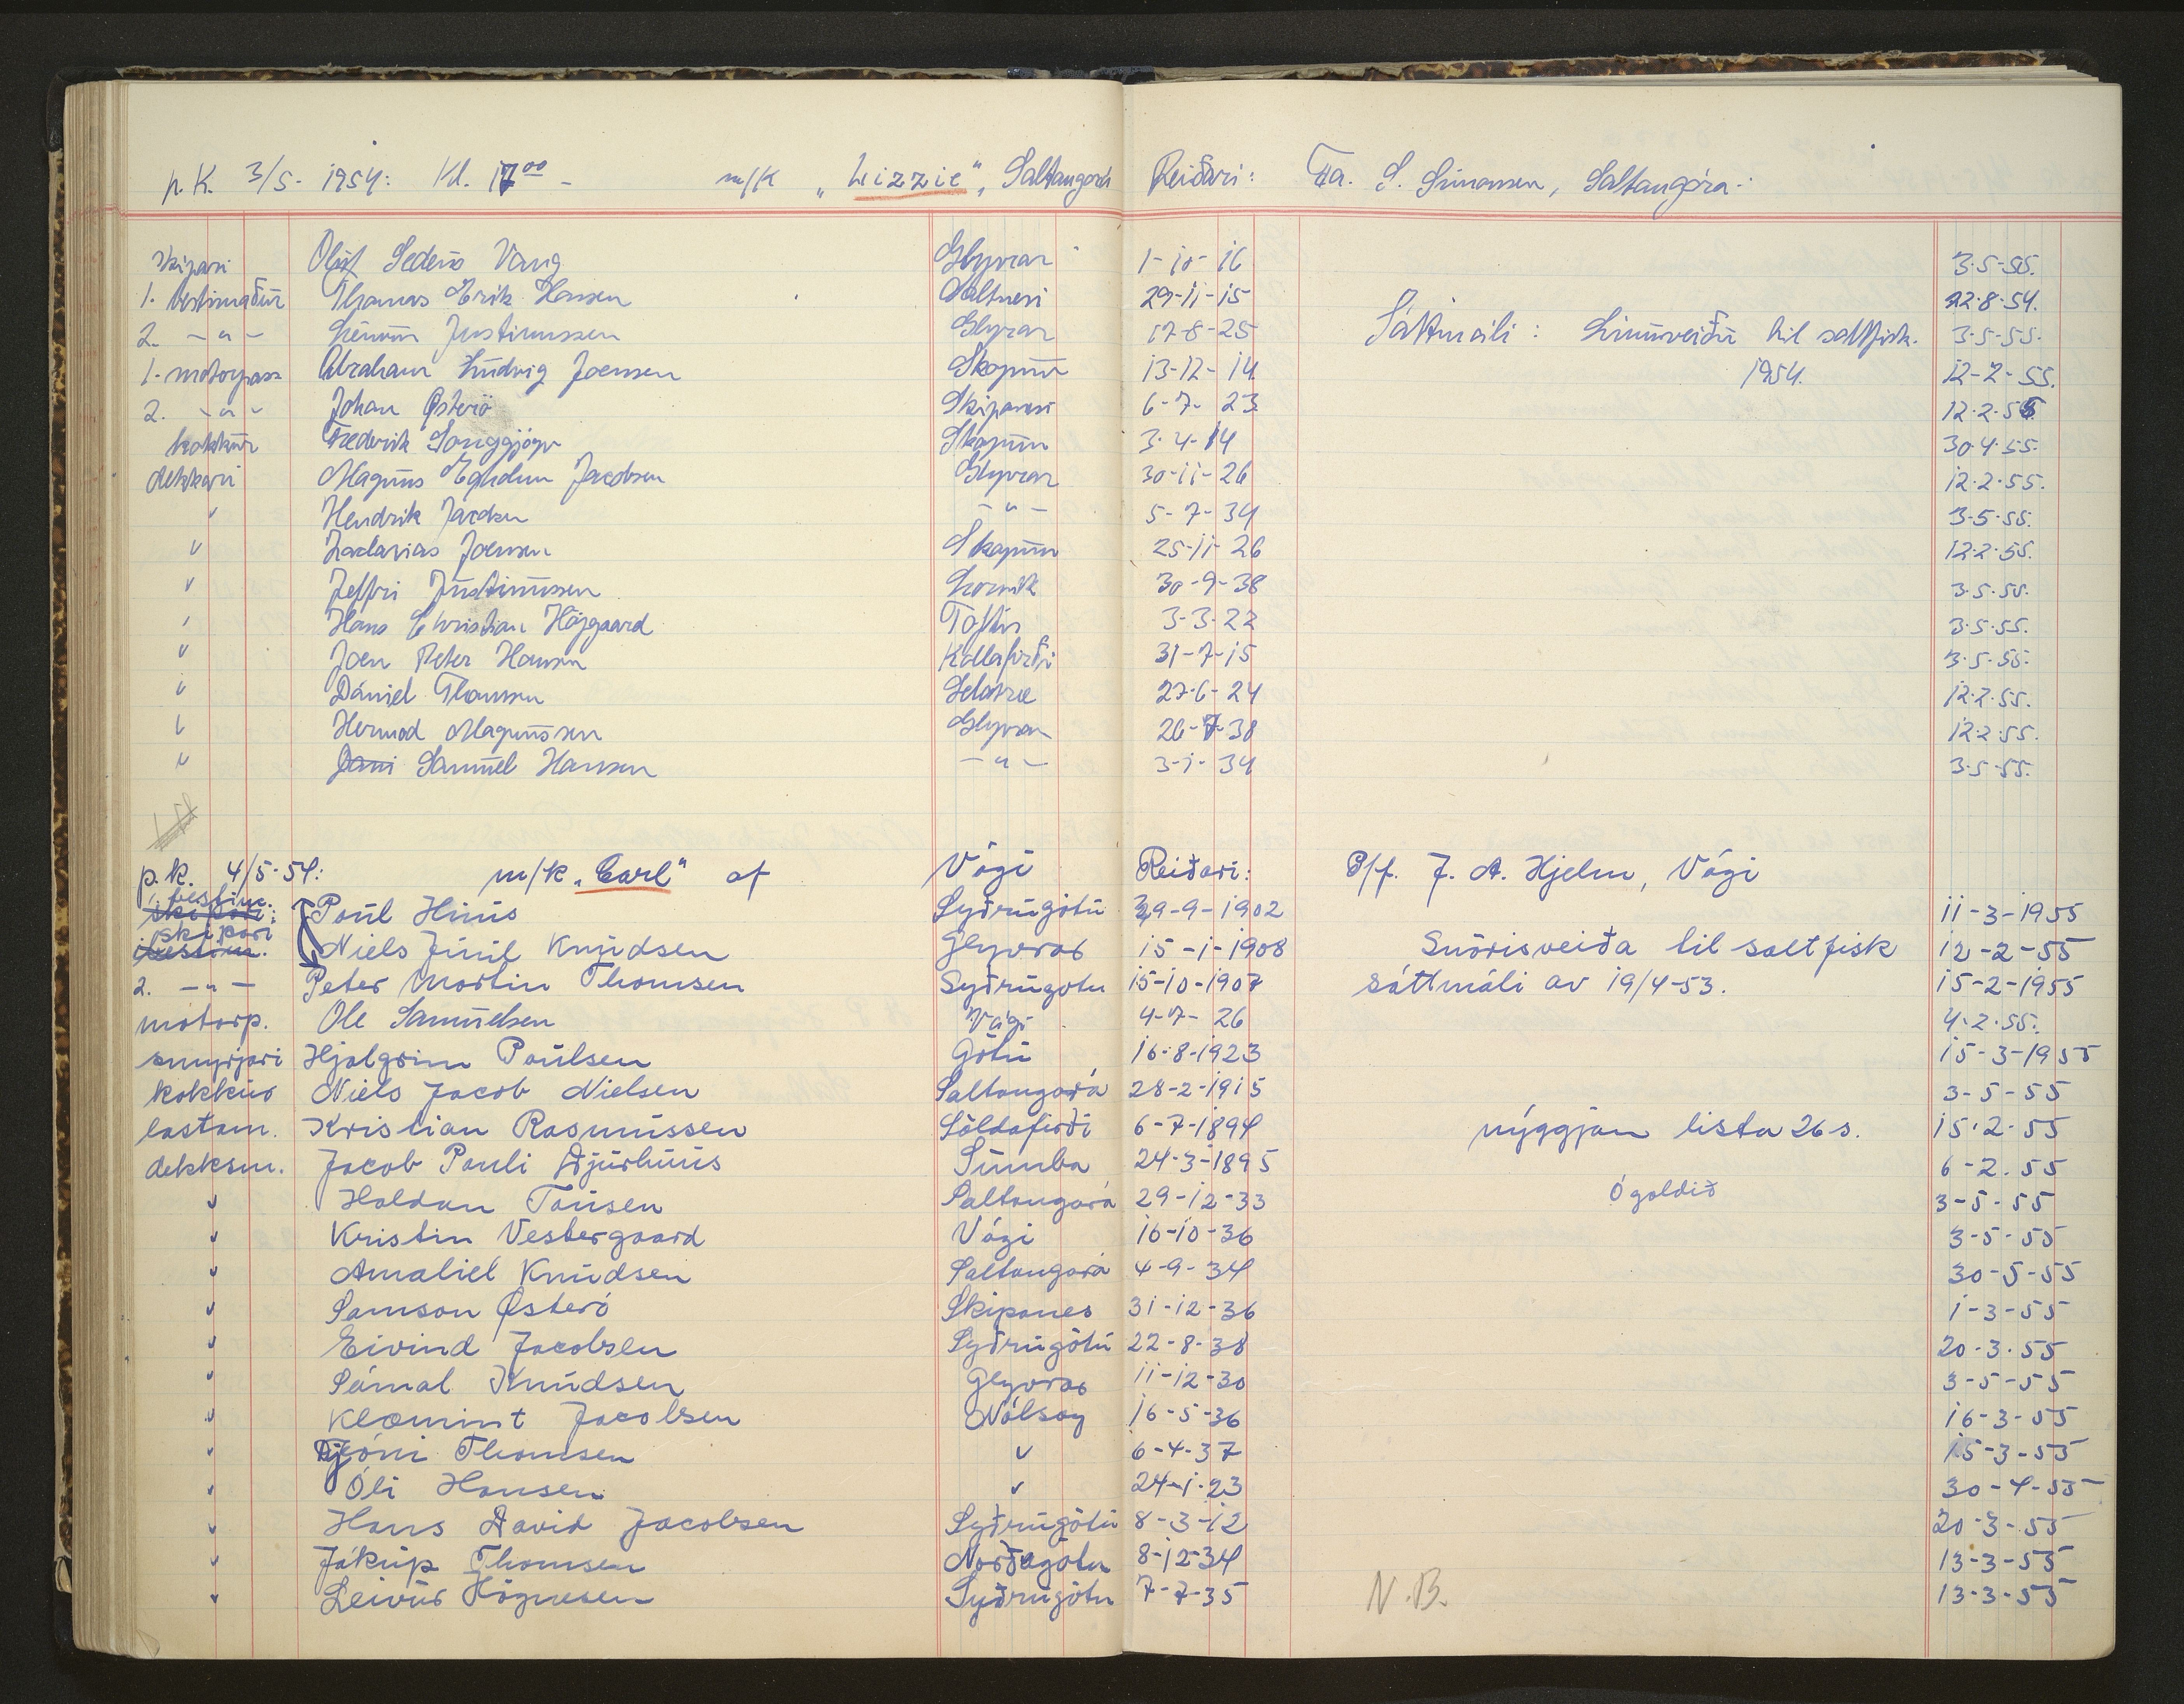 p.K. 3/5- 1954: Kl. 17⁰⁰ - m/k „Lizzie“, Saltangará Reiðari: Fa. S. Simonsen, Saltangará.
skipari Olaf Vang Glyvrar 1-10-16 3-5-55.
1. bestimaður Thomas Erik Hansen Saltnesi 29-11-15 22-8-54.
2. -"- Justinussen Glyvrar 17-8-25 Sáttmáli: Línuveiðu til saltfisk. 3-5-55.
1. motorpass Abraham Ludvig Joensen Skopun 13-12-14 1954. 12-2-55.
2. -"- Johan Østerö Skipanesi 6-7-23 12-2-55.
kokkur Frederik Skopun 3-4-14 30-4-55.
dekkari Magnus Jacobsen Glyvrar 30-11-26 12-2-55.
" Hendrik -"- 5-7-34 3-5-55.
" Zacharias Joensen Skopun 25-11-26 12-2-55.
" Jeffri Justinussen Lorvík 30-9-38 3-5-55.
" Hans Christian Højgaard Toftir 3-3-22 3-5-55.
" Joen Peter Hansen Kollafirði 31-7-15 3-5-55.
" Dániel Thomsen Selatræ 27-6-24 12-2-55.
" Hermod Magnussen Glyvrar 26-7-38 12-2-55.
" Jani Samuel Hansen -"- 3-1-34 3-5-55.
p.k. 4/5-54: m/k „Carl“ af Vági Reiðari: P/f. J. A. Hjelm, Vági
1. bestim.
skipari: Poul Húus Syðrugøtu 29-9-1902 11-3-1955
skipari
1. bestim. Niels Juul Knudsen Glyvrar 15-1-1908 Snørisveiða til saltfisk 12-2-55
2. -"- Peter Martin Thomsen Syðrugøtu 15-10-1907 sáttmáli av 19/4-53. 15-2-1955
motorp. Ole Samuelsen Vági 4-7-26 4-2-55.
smyrjari Hjalgrim Poulsen Gøtu 16-8-1923 15-3-1955
kokkur Niels Jacob Nielsen Saltangará 28-2-1915 3-5-55
lastam. Kristian Rasmussen Söldafirði 6-7-1894 nýggjan lista 26 s. 15-2-55
dekksm. Jacob Pauli Djurhuus Sumba 24-3-1895 6-2-55
" Haldan Tausen Saltangará 29-12-33 ógoldið 3-5-55
" Kristin Vestergaard Vági 16-10-36 3-5-55
" Amaliel Knudsen Saltangará 4-9-34 30-5-55
" Samson Østerö Skipanes 31-12-36 1-3-55
" Eivind Jacobsen Syðrugøtu 22-8-38 20-3-55
" Sámal Knudsen Glyvrar 11-12-30 3-5-55
" Klæmint Jacobsen Nólsoy 16-5-36 16-3-55
" Djóni Thomsen " 6-4-37 15-3-55
" Óli Hansen " 24-1-23 30-4-55
" Hans David Jacobsen Syðrugøtu 8-3-12 20-3-55
" Jákup Thomsen Norðagøtu 8-12-34 13-3-55
" Leivur Högnesen Syðrugøtu 7-7-35 N.B. 13-3-55